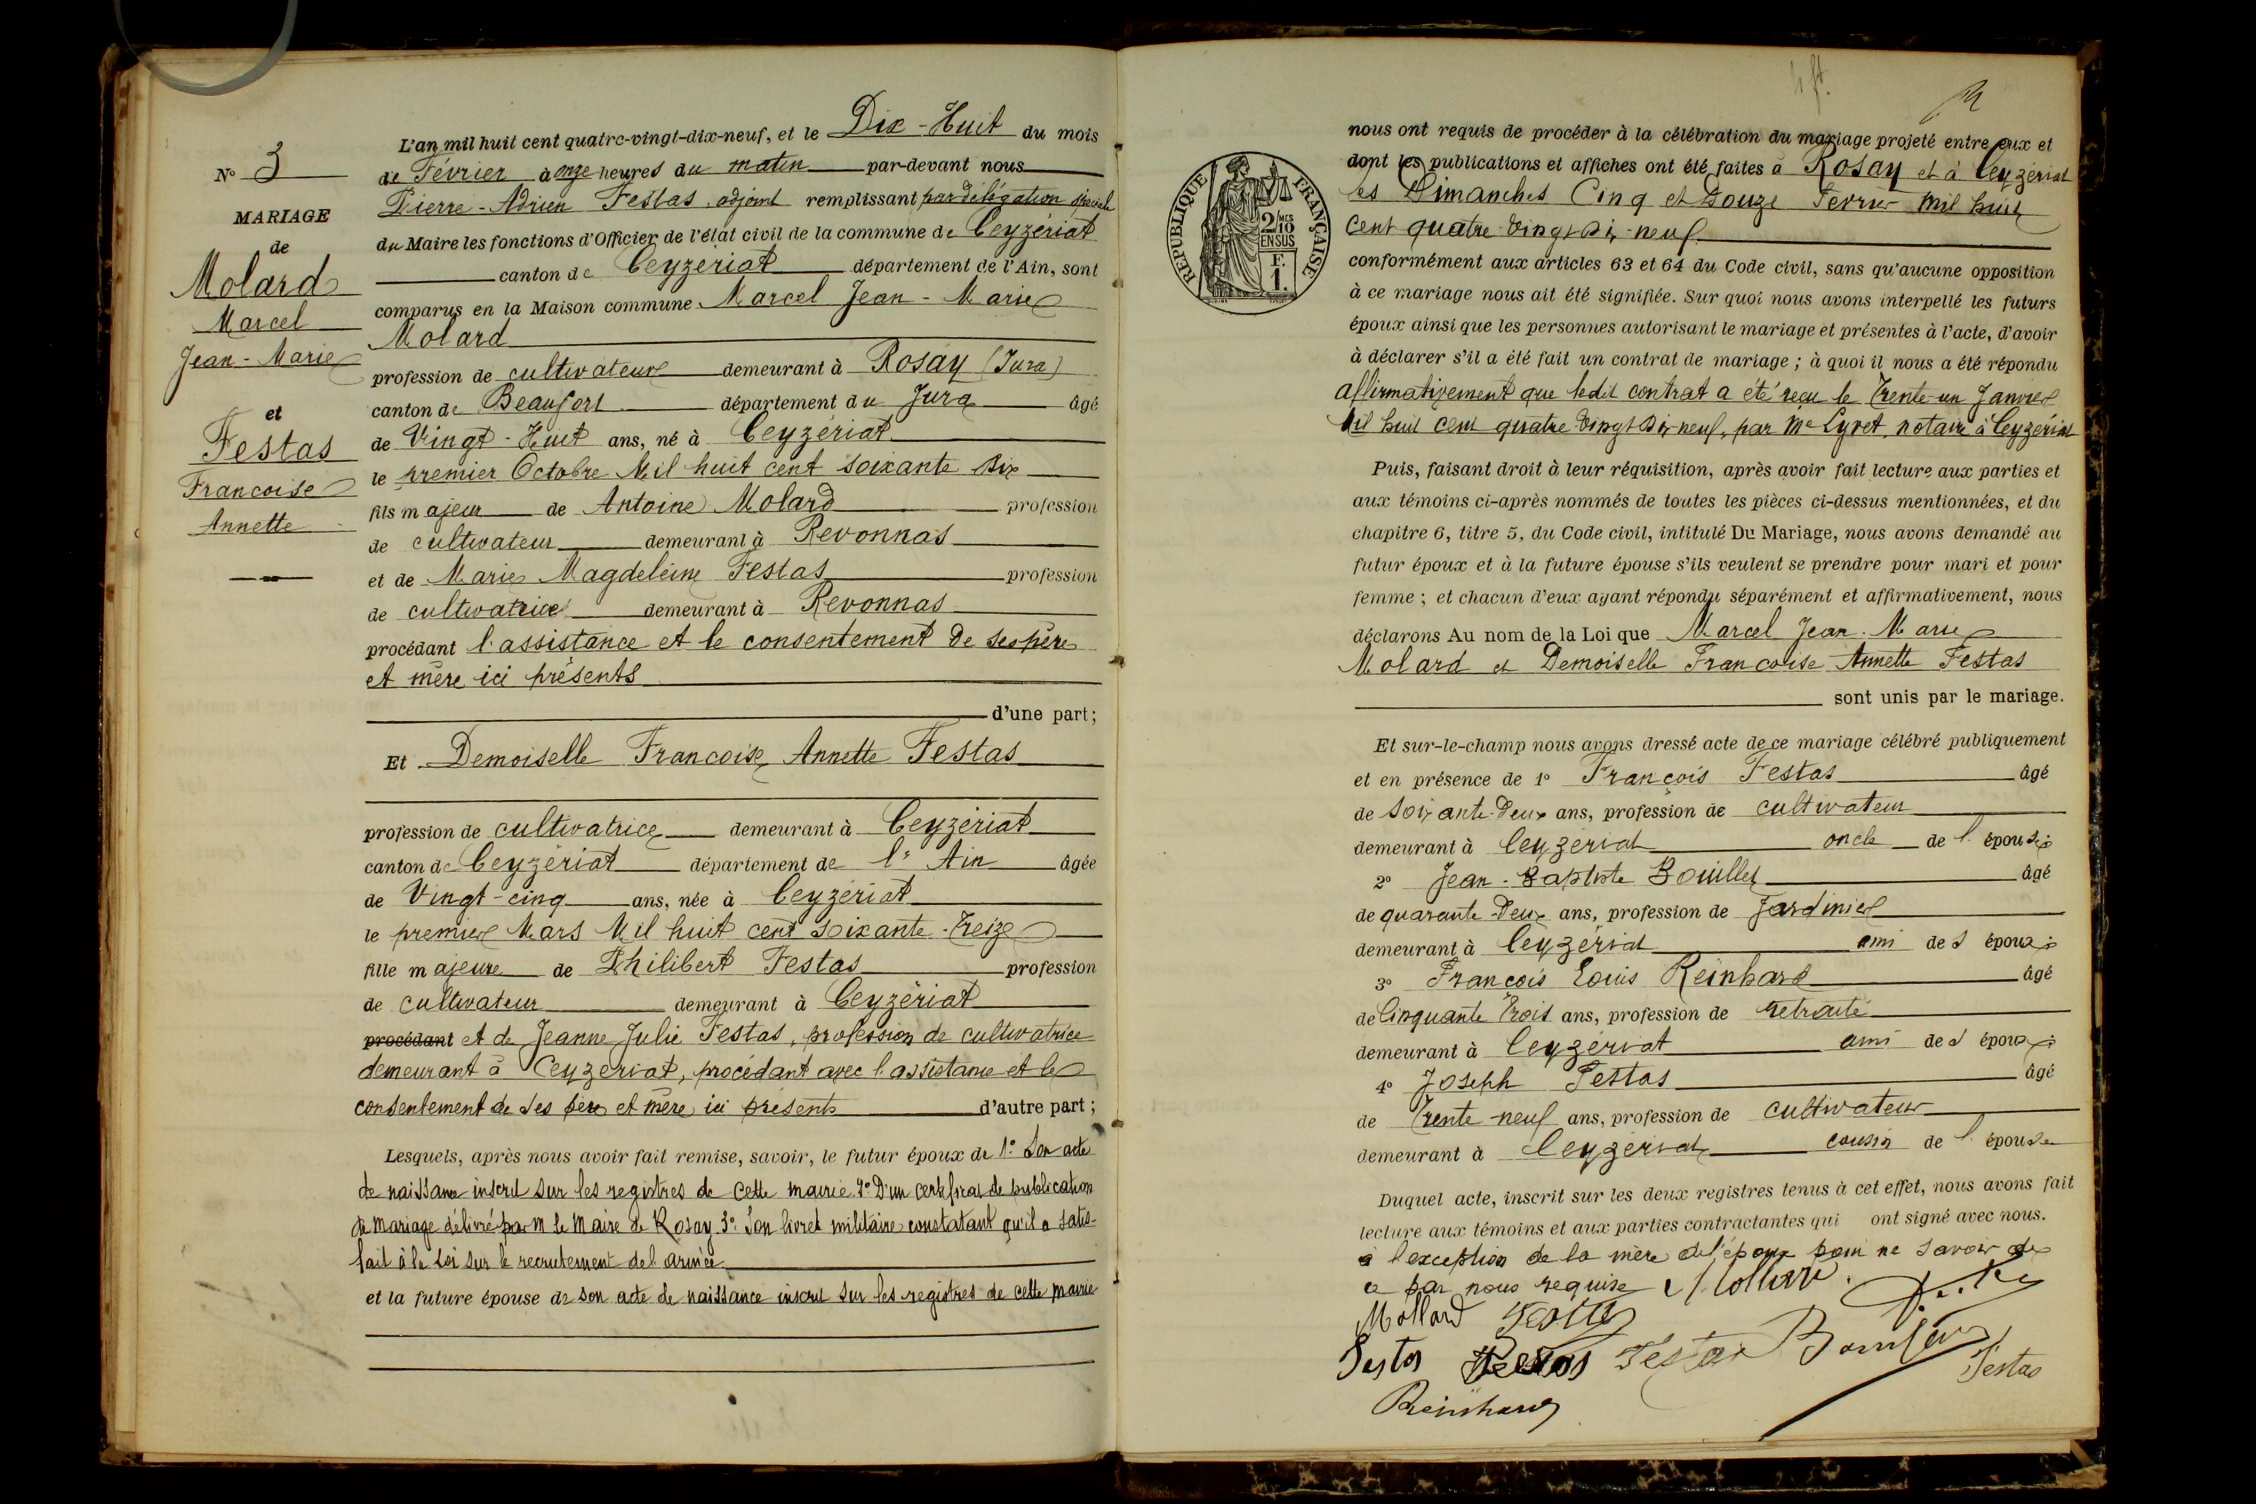 N° 3
MARIAGE
de
Molard
Marcel
Jean-Marie
et
Festas
Francoise
Annette
L'an mil huit cent quatre-vingt-dix-neuf, et le Dix-Huit du mois
de Février à onze heures du matin par-devant nous
Pierre-Adrien Festas adjoint remplissant par délégation spéciale
du Maire les fonctions d'Officier de l'état civil de la commune de Ceyzériat
canton de Ceyzériat département de l'Ain, sont
comparus en la Maison commune Marcel Jean-Marie
Molard
profession de cultivateur demeurant à Rosay (Jura)
canton de Beaufort département du Jura âgé
de Vingt-Huit ans, né à Ceyzériat
le premier Octobre Mil huit cent soixante dix
fils majeur de Antoine Molard profession
de cultivateur demeurant à Revonnas
et de Marie Magdeleine Festas profession
de cultivatrice demeurant à Revonnas
procédant l'assistance et le consentement de ses père
et mère ici présents
d'une part;
Et Demoiselle Francoise Annette Festas
profession de cultivatrice demeurant à Ceyzériat
canton de Ceyzériat département de l'Ain âgée
de Vingt-cinq ans, née à Ceyzériat
le premier Mars Mil huit cent soixante-Treize
fille majeure de Philibert Festas profession
de cultivateur demeurant à Ceyzériat
procédant et de Jeanne Julie Festas, profession de cultivatrice
demeurant à Ceyzeriat, procédant avec l'assistance et le
consentement de ses père et mère ici présents d'autre part;
Lesquels, après nous avoir fait remise, savoir, le futur époux de 1° Son acte
de naissance inscrit sur les registres de cette mairie 2° D'un certificat de publication
de Mariage délivré par M le Maire de Rosay. 3° Son livret militaire constatant qu'il a satis-
fait à la Loi sur le recrutement de l'armée
et la future épouse de son acte de naissance inscrit sur les registres de cette mairie
RÉPUBLIQUE FRANÇAISE
2/10 MES
EN SUS
F.
1.
nous ont requis de procéder à la célébration du mariage projeté entre eux et
dont les publications et affiches ont été faites à Rosay et à Ceyzériat
les Dimanches Cinq et Douze Fevrier mil huit
Cent quatre-vingt Dix-neuf.
conformément aux articles 63 et 64 du Code civil, sans qu'aucune opposition
à ce mariage nous ait été signifiée. Sur quoi nous avons interpellé les futurs
époux ainsi que les personnes autorisant le mariage et présentes à l'acte, d'avoir
à déclarer s'il a été fait un contrat de mariage; à quoi il nous a été répondu
affirmativement que ledit contrat a été reçu le Trente-un Janvier
Mil huit cent quatre Vingt Dix neuf, par Me Lyvet, notaire à Ceyzériat
Puis, faisant droit à leur réquisition, après avoir fait lecture aux parties et
aux témoins ci-après nommés de toutes les pièces ci-dessus mentionnées, et du
chapitre 6, titre 5, du Code civil, intitulé Du Mariage, nous avons demandé au
futur époux et à la future épouse s'ils veulent se prendre pour mari et pour
femme; et chacun d'eux ayant répondu séparément et affirmativement, nous
déclarons Au nom de la Loi que Marcel Jean-Marie
Molard et Demoiselle Francoise Annette Festas
sont unis par le mariage.
Et sur-le-champ nous avons dressé acte de ce mariage célébré publiquement
et en présence de 1° François Festas âgé
de soixante-Deux ans, profession de cultivateur
demeurant à Ceyzeriat oncle de l'épouse;
2° Jean-Baptiste Bouillet âgé
de quarante-Deux ans, profession de Jardinier
demeurant à Ceyzériat ami des époux;
3° François Louis Reinhard âgé
de Cinquante Trois ans, profession de retraité
demeurant à Ceyzériat ami des époux;
4° Joseph Festas âgé
de Trente-neuf ans, profession de cultivateur
demeurant à Ceyzériat cousin de l'épouse
Duquel acte, inscrit sur les deux registres tenus à cet effet, nous avons fait
lecture aux témoins et aux parties contractantes qui ont signé avec nous.
à l'exception de la mère de l'époux pour ne savoir de
ce par nous requise
Mollard
Festas Festas Festas
Festas
Reinhard